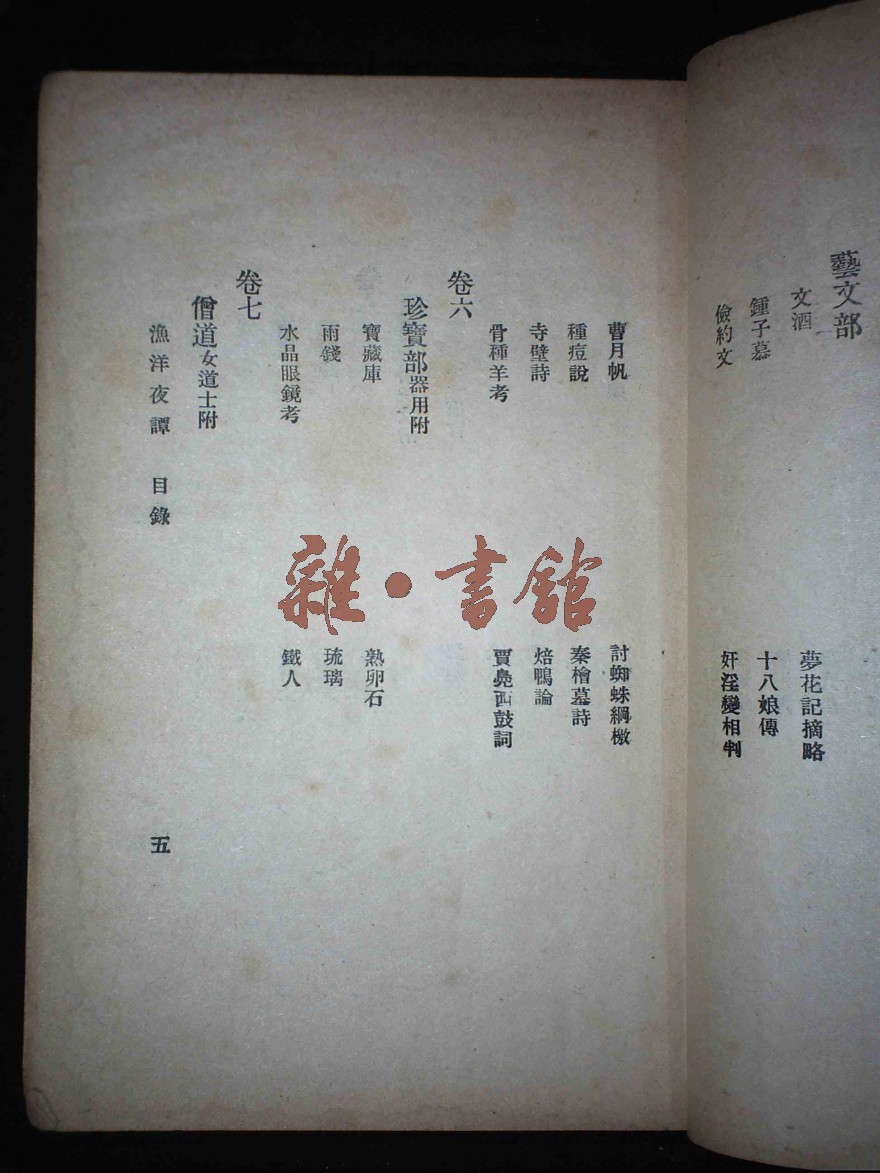 藝文部
文酒 夢花記摘略
鍾子慕 十八娘傳
儉約文 奸淫變相判
曹月帆 討蜘蛛網檄
種痘說 秦檜墓詩
寺壁詩 焙鴨論
骨種羊考 賈鳧西鼓詞
卷六
珍寶部器用附
寶藏庫 熟卵石
雨錢 琉璃
水晶眼鏡考 鐵人
卷七
僧道女道士附
漁洋夜譚 目錄 五
雜·書館